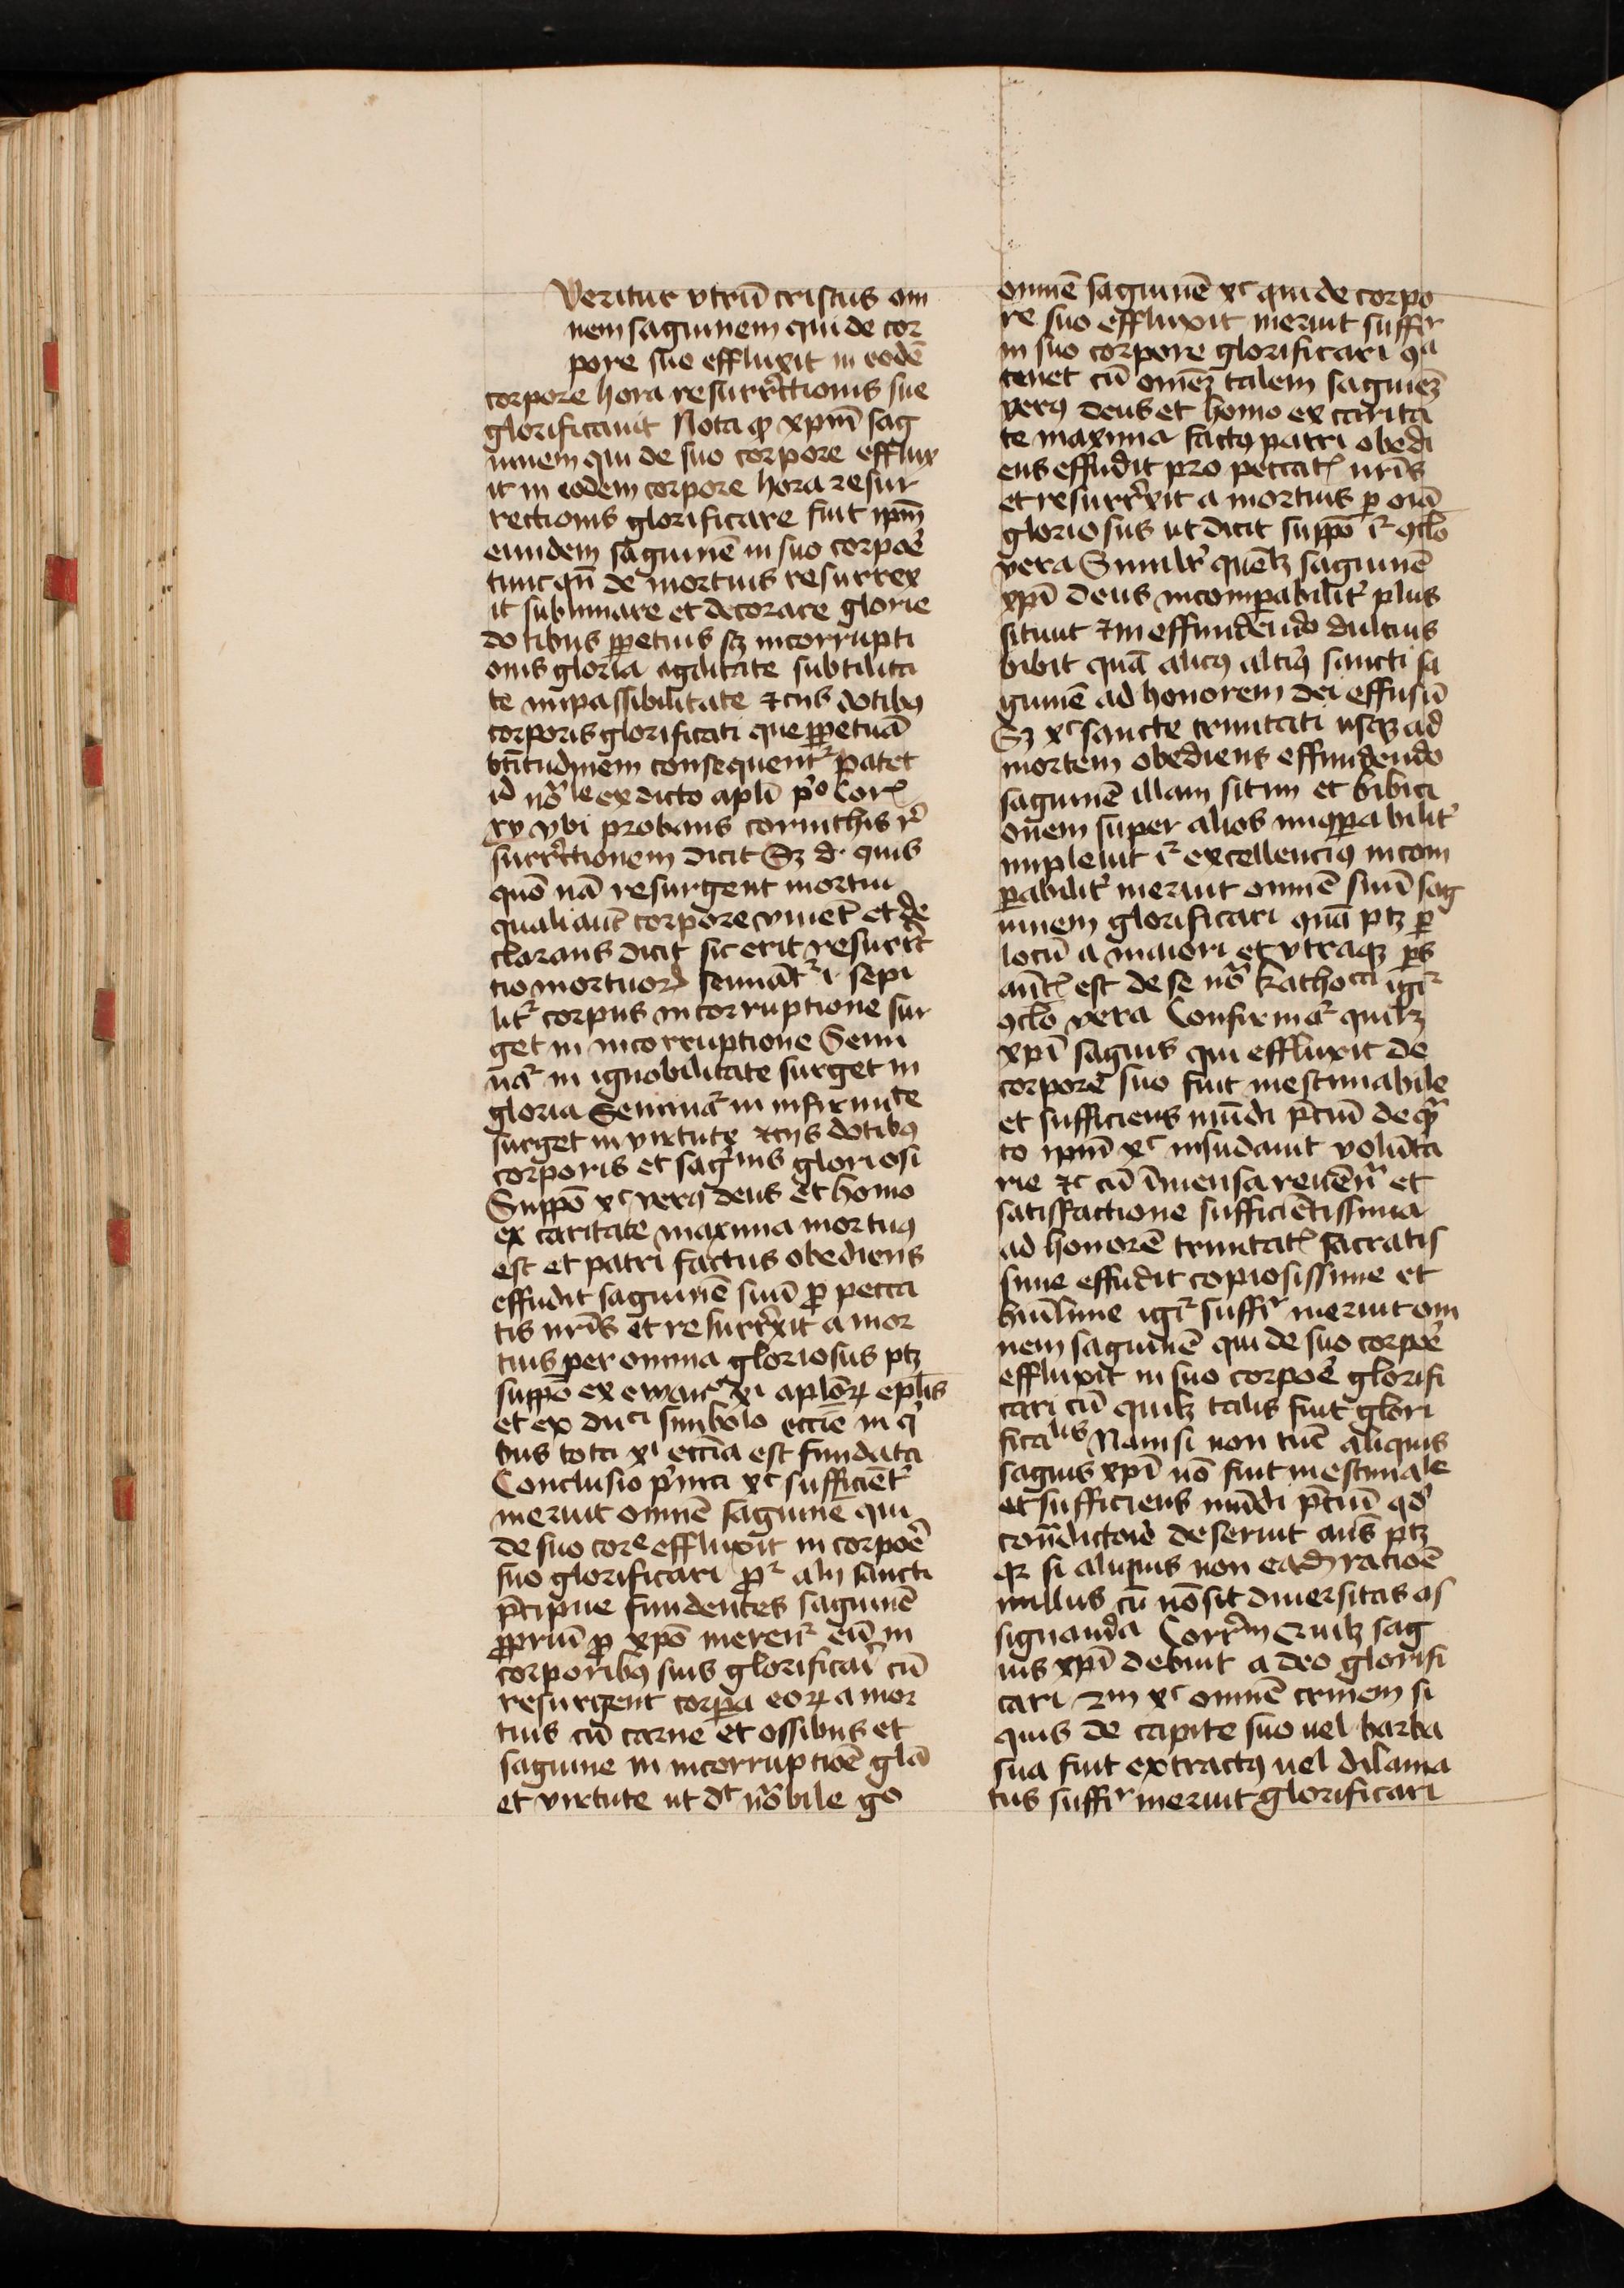 Veritur vtrū cristus om
nem saguinem qui de cor
pore suo effluxit in eodē
corpore hora resurrēctionis sue
glorificauit Nota ꝙ xpm̄ sag
uinem qui de suo corpore efflux
it in eodem corpore hora resur
rectionis glorificare fuit ipm̄
eundem saguinē in suo corpoē
tunc qn̄ de mortuis resurrex
it sublimare et decorare glorie
dotibus ꝑpetuis sꝫ incorrupti
onis gloria agilitate subtilita
te impassibilitate ⁊ cijs dotibꝰ
corporis glorificati que ꝑpetuā
btītudinem consequent᷑ patet
id nō le ex dicto apli pͦ Cor
xv vbi probans corinthis re
surrēctionem dicit Sꝫ d. quis
quō nā resurgent mortui
quali aut̄ corpore vniet̄ et de
clarans dicit sic erit resurrēc
tio mortuoꝝ seminat᷑ i sepi
lit᷑ corpus in corruptione sur
get in incorruptione Semi
na᷑ in ignobilitate surget in
gloria Semina᷑ in infirmite
surget in virtute ⁊ cijs dotibꝰ
corporis et sag̅inis gloriosi
Suppō xͨ verꝰ deus et homo
ex caritate maxima mortuꝰ
est et patri factus obediens
effudit saguinē suū ꝓ pecca
tis nr̄is et resurrēxit a mor
tuis per omnia gloriosus ptꝫ
suppō ex ewāc xi aploꝝ eplis
et ex duci simbolo eccīe in q
bus tota xi eccīa est fundata
Conclusio prima xͨ sufficiēt᷑
meruit omnē saguinē qui
de suo core effluxit in corpoē
suo glorificari ꝓ᷑ alij sancti
p̄cipue fundentes saguinē
ꝓpriū ꝓ xpō meren᷑ eū in
corporibꝰ suis glorificari cū
resurgent corpa eoꝝ a mor
tuis cū carne et ossibus et
saguine in incorruptiōe glā
et virtute ut dͭ nō bile gͦ
omnē saguinē xͨ qui de corpo
re suo effluxit meruit suffir
in suo corpore glorificari ꝯa
tenet cū omēꝫ talem saguieꝫ
verꝰ deus et homo ex carita
te maxima factꝰ patri obedi
ens effudit pro peccatꝭ nr̄is
et resurrēxit a mortuis ꝑ oīa
gloriosus ut dicit suppō i᷑ ꝯclō
vera Similr̄ quēlꝫ saguinē
xpī deus incomꝑabilit᷑ plus
sitiuit ⁊ in effundendo dulcius
bibit quā alicꝰ altiꝰ sancti sa
guinē ad honorem dei effusū
Sꝫ xͨ sancte trinitati usqꝫ ad
mortem obediens effundendo
saguinē illam sitim et bibici
onem super alios inꝯꝑabilit᷑
impleuit i᷑ excellenciꝰ incom
ꝑabilit᷑ meruit omnē suū sag
uinem glorificari quā ptꝫ ꝑ
locū a maiori et vtraqꝫ ps
aūtꝭ est de se nō kathoca igi᷑
ꝯclō vera Confirma᷑ quilꝫ
xpī saguis qui effluxit de
corpore suo fuit inestimabile
et sufficiens mūdi p̄ciū de qͣ
to ipm̄ xͨ insudauit volūta
rie ⁊ͨ cū īmensa reuēn̄ et
satisfactione sufficiētissima
ad honorē trinitatꝭ sacratis
sime effudit copiosissime et
humlime igi᷑ suffir meruit om
nem saguinē qui de suo corpoē
effluxit in suo corpoē glorifi
cari cū quilꝫ talis fuit glori
ficalis Nam si non tūc aliquis
saguis xpī nō fuit inestimale
et sufficiens mūdi p̄ciū qd̄
con̄dictoie deseruit aūs ptꝫ
qꝛ si aliquis non eadꝫ ratioē
nullus cū nō sit diuersitas as
signanda Corrm Quilꝫ sag
uis xpī debuit a deo glorifi
cari 2m xͨ omnē crinem si
quis de capite suo uel barba
sua fuit extractꝰ uel dilania
tus suffir meruit glorificari